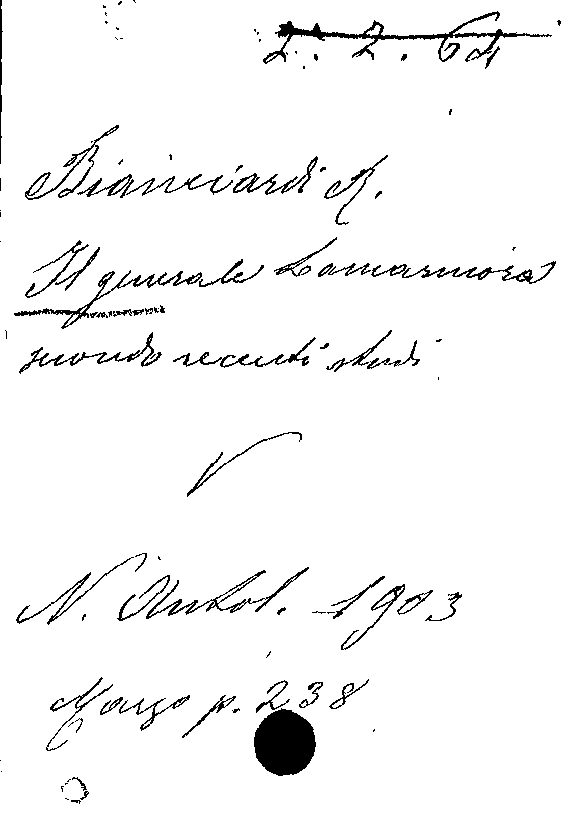 2. 2. 64
Bianciardi R.
Il generale Lamarmora
secondo recenti studi
N. Antol. 1903
Marzo p. 238